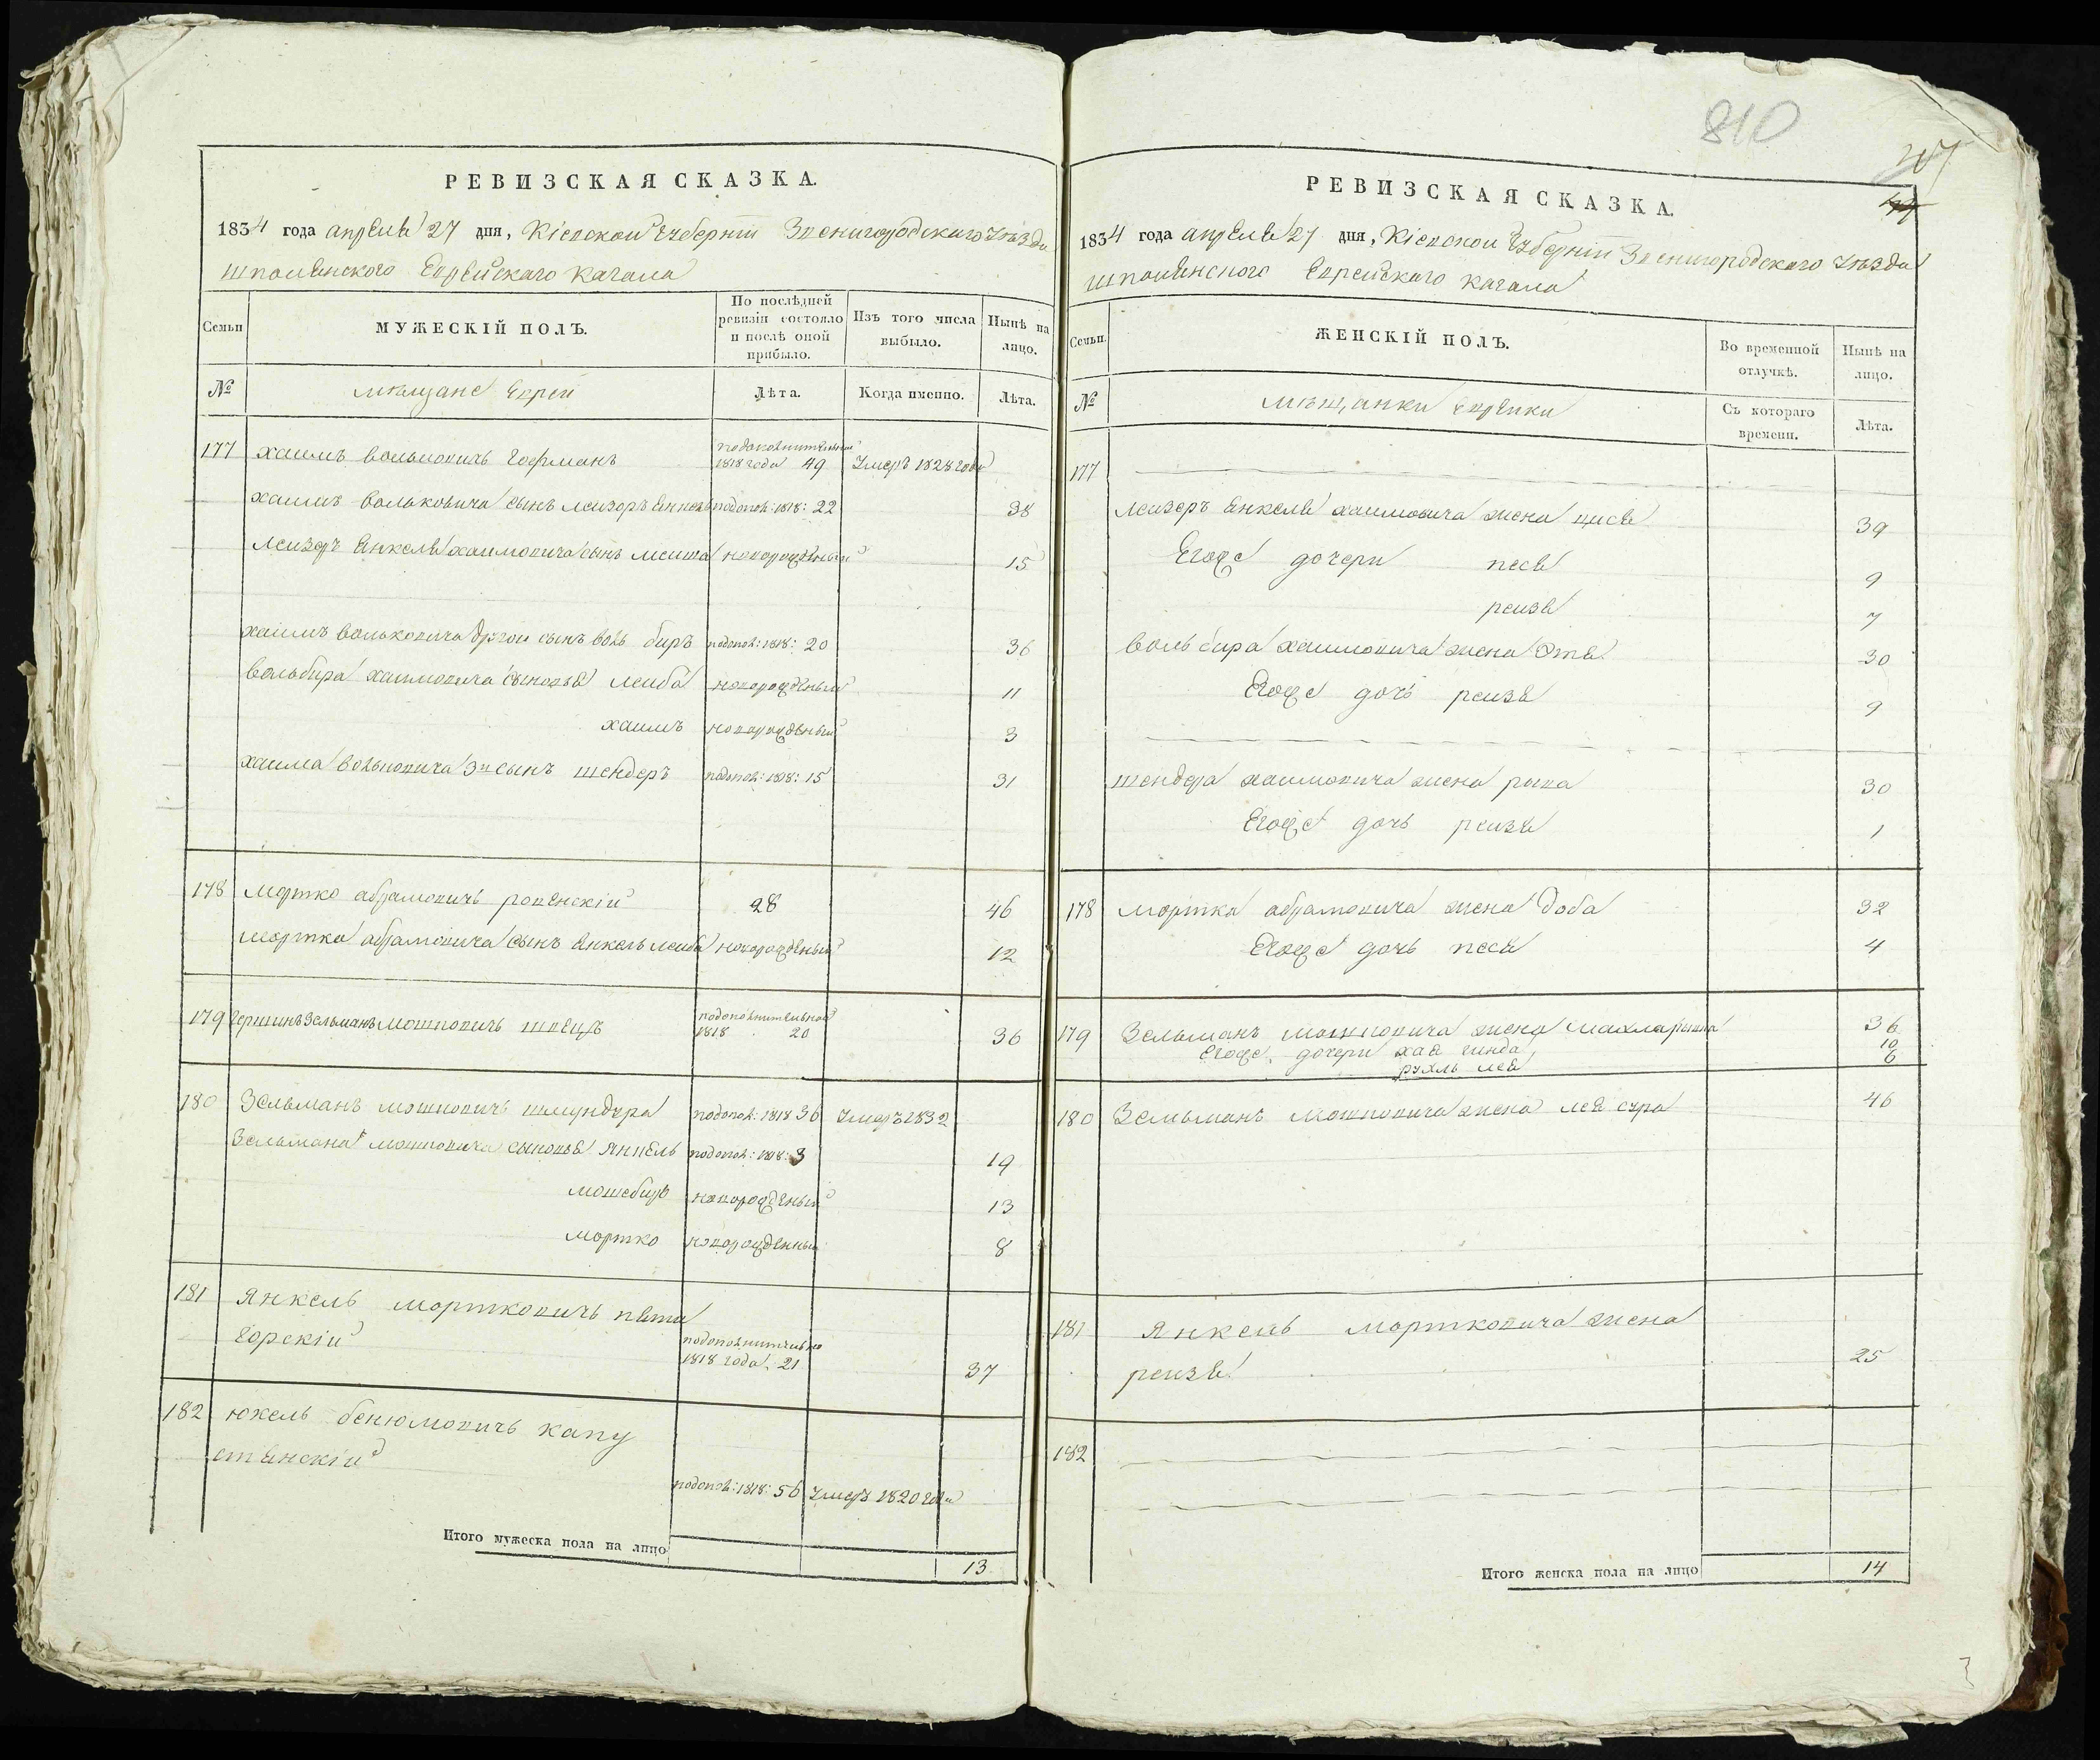 810
РЕВИЗСКАЯ СКАЗКА.
1834 года апреля 27 дня, Кіевской Губерніи Звенигородскаго Уѣзда
шполянского Еврейскаго Кагала
Семьи
МУЖЕСКІЙ ПОЛЪ.
По послѣдней ревизіи состояло и послѣ оной прибыло.
Изъ того числа выбыло.
Нынѣ на лицо.
№
мѣщане Евреи
Лѣта.
Когда именно.
Лѣта.
177 хаимъ вольковичь гофманъ подополнительной 1818 года 49 Умеръ 1828 года
хаимъ вольковича сынъ лейзоръ Янкель подопол: 1818: 22 38
лейзеръ Янкеля хаимовича сынъ новорожденный 15
хаимъ вольковича другой сынъ воль беръ подопол: 1818: 20 36
вольбера хаимовича сыновья лейба новорожденный 11
хаимъ новорожденный 3
хаима вольковича 3й сынъ шендеръ подопол: 1818: 15 31
178 мортко абрамовичь ровенскій 28 46
мортка абрамовича сынъ Янкель лейба новорожденный 12
179 Гершинъ Зельманъ мошковичь швецъ подополнительной 1818 20 36
180 Зельманъ мошковичь подопол: 1818 36 Умеръ 1832
Зельмана мошковича сыновья Янкель подопол: 1818: 3 19
мошеберъ новорожденный 13
мортко новорожденный 8
181 Янкель мортковичь пяти
горскій подополнительно 1818 года 21 37
182 юкель бенюмовичь капу
стянскій
подопол: 1818: 56 Умеръ 1820 года
Итого мужеска пола на лицо 13
РЕВИЗСКАЯ СКАЗКА.
1834 года апреля 27 дня, Кіевской Губерніи Звенигородскаго Уѣзда
шполянского Еврейскаго Кагала
Семьи.
ЖЕНСКІЙ ПОЛЪ.
Во временной отлучкѣ.
Нынѣ на лицо.
№
мѣщанки Еврейки
Съ котораго времени.
Лѣта.
177
лейзеръ Янкеля хаимовича жена 39
Егоже дочери песя 9
рейзя 7
воль бера хаимовича жена Этя 30
Егоже дочь рейзя 9
шендера хаимовича жена рыва 30
Егоже дочь рейзя 1
178 мортка абрамовича жена Доба 32
Егоже дочь песя 4
179 Зельманъ мошковича жена 36
Егоже дочери хая гинда 10
рухль лея 6
180 Зельманъ мошковича жена лея сура 46
181 Янкель мортковича жена
рейзя 25
182
Итого женска пола на лицо 14